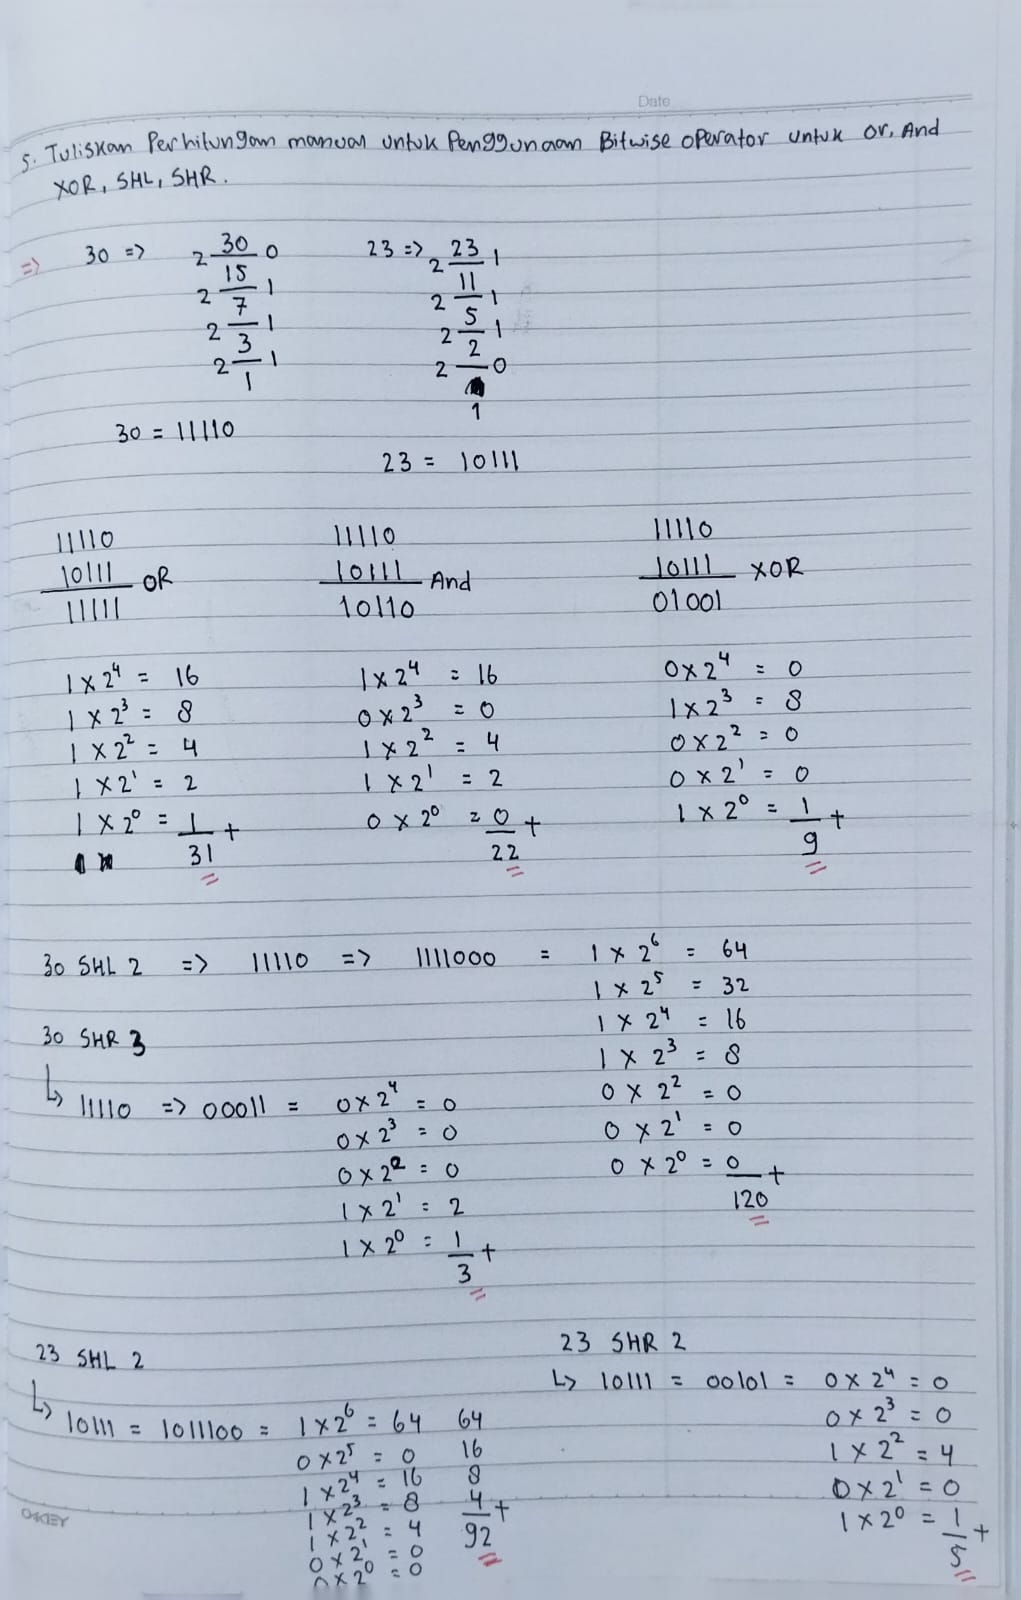 Date
5. Tuliskan Perhitungan manual untuk Penggunaan Bitwise operator untuk or, And
XOR, SHL, SHR.
=> 30 => 2 30 0
2 15 1
2 7 1
2 3 1
1
30 = 11110
23 => 2 23 1
2 11 1
2 5 1
2 2 0
1
23 = 10111
11110
10111 OR
11111
1 x 2⁴ = 16
1 x 2³ = 8
1 x 2² = 4
1 x 2¹ = 2
1 x 2⁰ = 1 +
31
11110
10111 And
10110
1 x 2⁴ = 16
0 x 2³ = 0
1 x 2² = 4
1 x 2¹ = 2
0 x 2⁰ = 0 +
22
11110
10111 XOR
01001
0 x 2⁴ = 0
1 x 2³ = 8
0 x 2² = 0
0 x 2¹ = 0
1 x 2⁰ = 1 +
9
30 SHL 2 => 11110 => 1111000 = 1 x 2⁶ = 64
1 x 2⁵ = 32
1 x 2⁴ = 16
1 x 2³ = 8
0 x 2² = 0
0 x 2¹ = 0
0 x 2⁰ = 0 +
120
30 SHR 3
↳ 11110 => 00011 = 0 x 2⁴ = 0
0 x 2³ = 0
0 x 2² = 0
1 x 2¹ = 2
1 x 2⁰ = 1 +
3
23 SHL 2
↳ 10111 = 1011100 = 1 x 2⁶ = 64 64
0 x 2⁵ = 0 16
1 x 2⁴ = 16 8
1 x 2³ = 8 4 +
1 x 2² = 4 92
0 x 2¹ = 0
0 x 2⁰ = 0
23 SHR 2
↳ 10111 = 00101 = 0 x 2⁴ = 0
0 x 2³ = 0
1 x 2² = 4
0 x 2¹ = 0
1 x 2⁰ = 1 +
5
OKEY